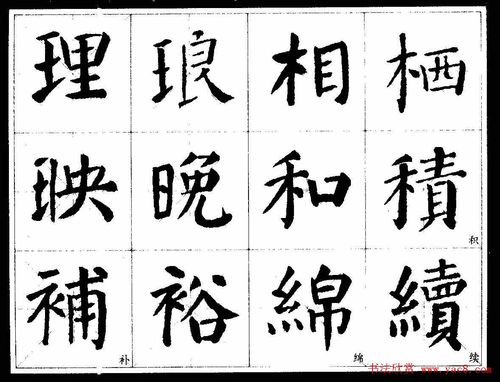 理 琅 相 栖
映 晚 和 積 积
補 补 裕 綿 绵 續 续
书法欣赏 www.yac8.com